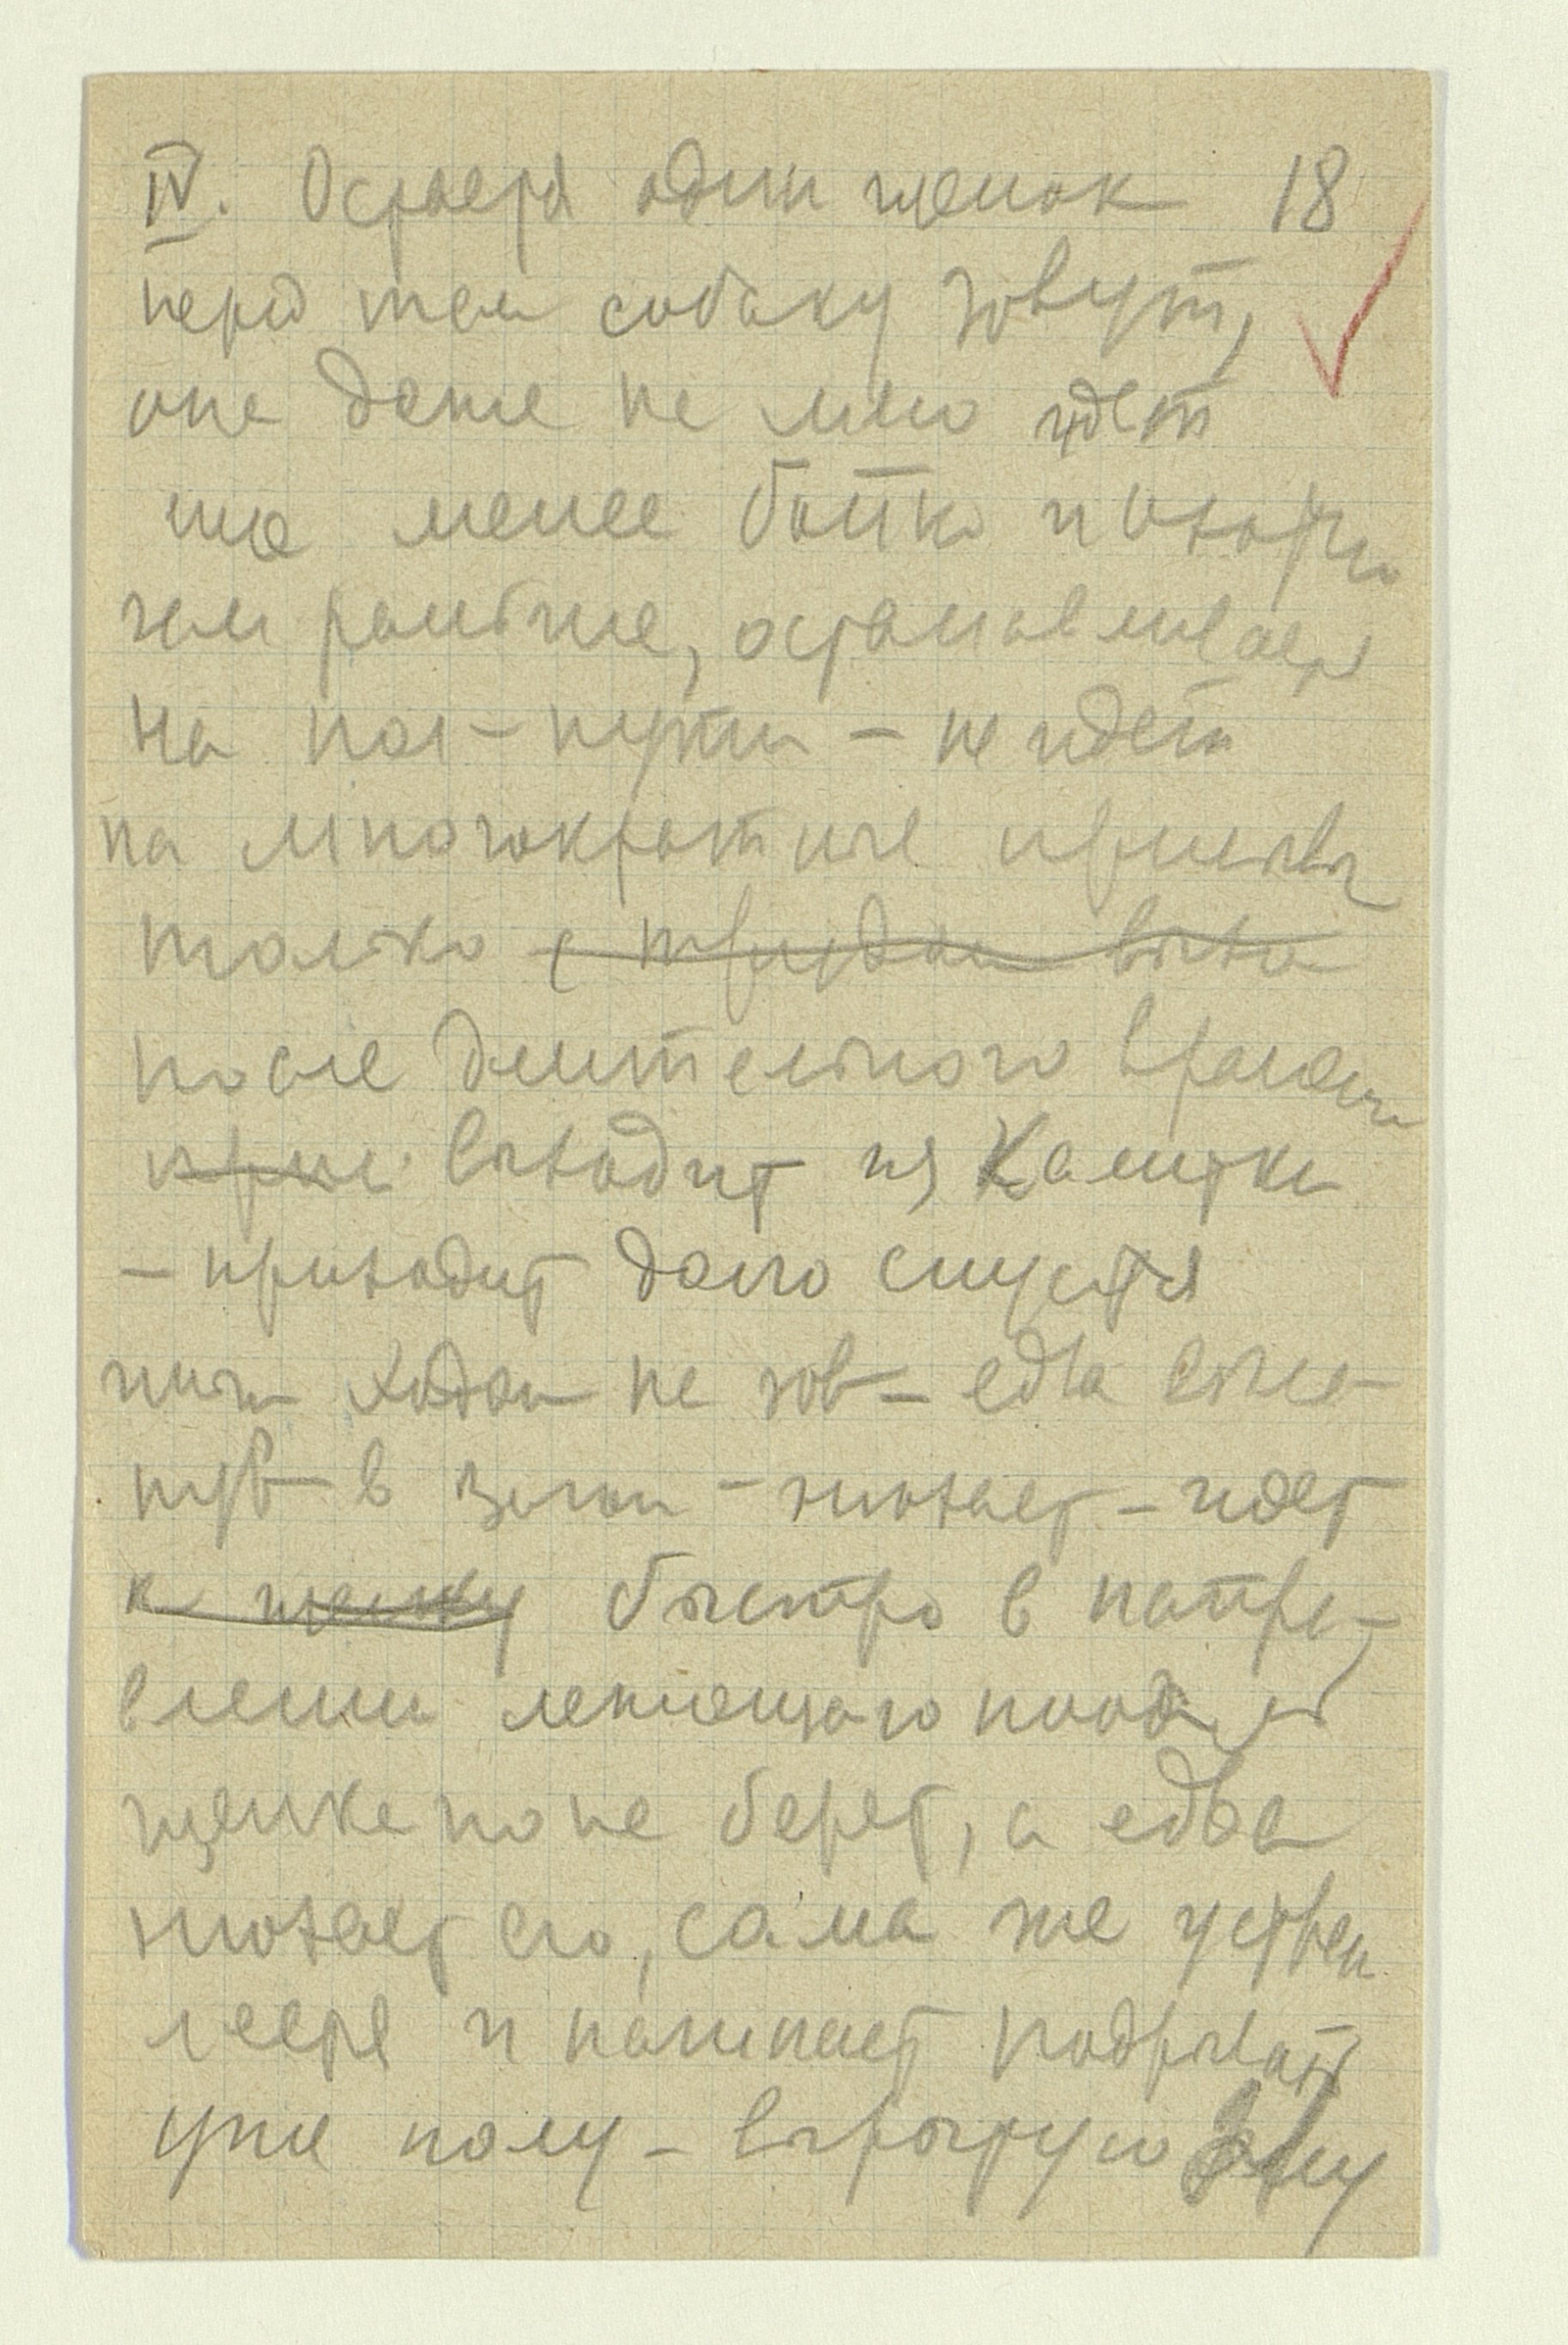 IV. Остается один щенок 18
перед тем собаку зовут,
она даже не идет
еще менее бойко и охотно
чем раньше, останавливается
на пол-пути - не идет
на многократные призывы
только с трудом выхо
после длительного времени
выходит из калитки
- приходит долго спустя
ходом не зов - едва взгля
в - нюхает - идет
к щенку быстро в напра-
влении лежащего поодаль
щенка но не берет, а едва
нюхает его, сама же устрем
ляется и начинает подрывать
уже полу-вырытую яму